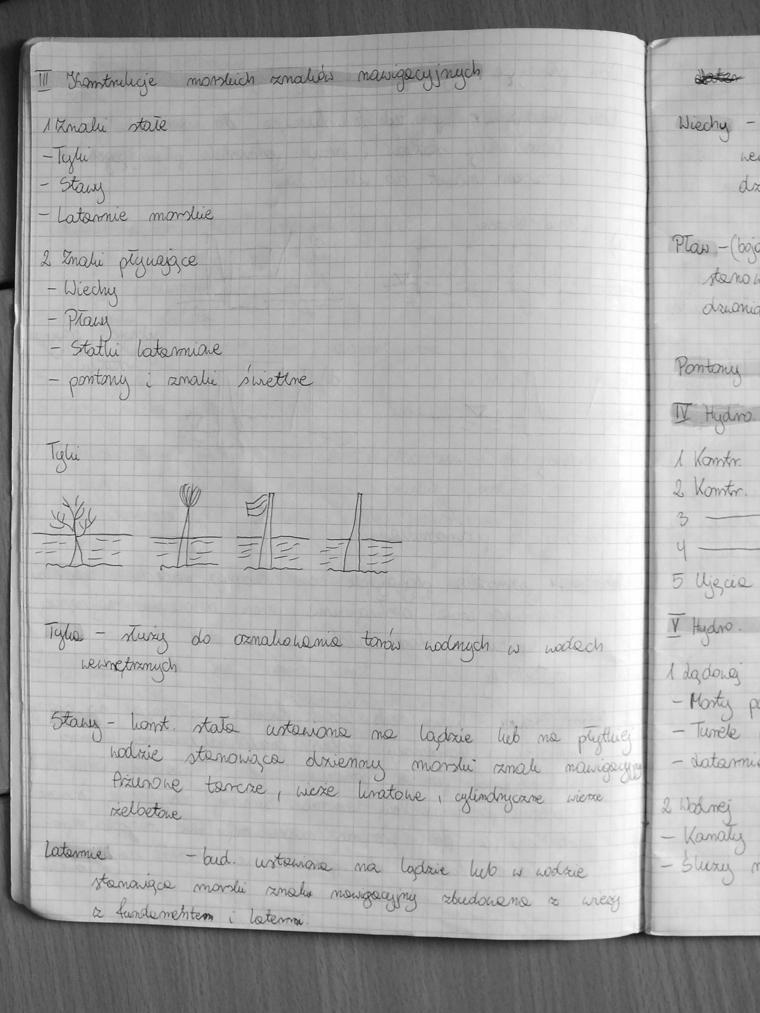 III Konstrukcje morskich znaków nawigacyjnych
1 Znaki stałe
- Tyki
- Stawy
- Latarnie morskie
2 Znaki pływające
- Wiechy
- Pławy
- Statki latarniowe
- pontony i znaki świetlne
Tyki
Tyka - służy do oznakowania torów wodnych w wodach
wewnętrznych
Stawy - konst. stała ustawiona na lądzie lub na płytkiej
wodzie stanowiąca dzienny morski znak nawigacyjny
Ażurowe tarcze, wieże kratowe, cylindryczne wieże
żelbetowe
Latarnie - bud. ustawiona na lądzie lub w wodzie
stanowiąca morski znak nawigacyjny zbudowana z wieży
z fundamentem i laterni.
Wiechy -
we
dz
Pław - (boja
stanow
dzwonia
Pontony
IV Hydro.
1 Kontr.
2 Kontr.
3
4
5 Ujęcia
V Hydro.
1 Lądowej
- Mosty p
- Tunele
- Latarni
2 Wodnej
- Kanały
- Śluzy